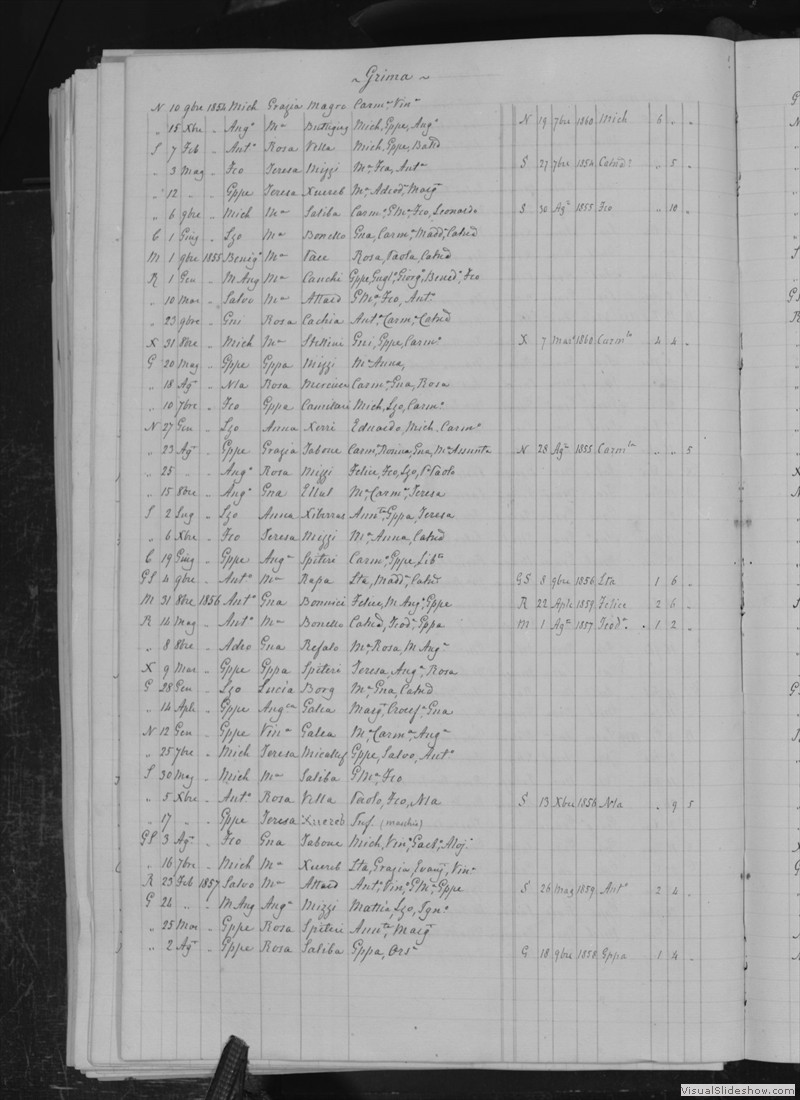 ~ Grima ~
N 10 9bre 1854 Mich Grazia Magro Carmª Vinª
„ 15 Xbre „ Angº Mª Buttigieg Mich, Gppe, Angº N 19 7bre 1860 Mich 6 „ „
S 7 Feb „ Antº Rosa Vella Mich, Gppe,
„ 3 Mag „ Fco Teresa Mizzi Mª, Fca, Antª S 27 7bre 1854 „ 5 „
„ 12 „ „ Gppe Teresa Xuereb Mª, Margª
„ 6 9bre „ Mich Mª Saliba Carmº, G Mª, Fco, Leonardo S 30 Agº 1855 Fco „ 10 „
C 1 Giug „ Lzo Mª Bonello Gna, Carmª, Maddª, Catnª
M 1 9bre 1855 Benigº Mª Rosa, Paola, Catnª
R 1 Gen „ M Ang Mª Cauchi Gppe, Guglº, Giorgº, Benedº, Fco
„ 10 Mar „ Salvo Mª Attard G Mª, Fco, Antº
„ 23 9bre „ Gni Rosa Cachia Antª, Carmª, Catnª
X 31 8bre „ Mich Mª Stellini Gni, Gppe, Carmª X 7 Marº 1860 Carmla 4 4 „
G 20 Mag „ Gppe Gppa Mizzi Mª Anna,
„ 18 Agº „ Nla Rosa Mercieca Carmª, Gna, Rosa
„ 10 7bre „ Fco Gppa Camilleri Mich, Lzo, Carmª
N 27 Gen „ Lzo Anna Xerri Eduardo, Mich, Carmª
„ 23 Agº „ Gppe Grazia Tabone Carmª, Rosina, Gna, Mª Assunta N 28 Agº 1855 Carmla „ „ 5
„ 25 „ „ Angº Rosa Mizzi Felice, Fco, Lzo, Paolo
„ 15 8bre „ Angº Gna Ellul Mª, Carmª, Teresa
S 2 Lug „ Lzo Anna Xiberras Annta, Gppa, Teresa
„ 6 Xbre „ Fco Teresa Mizzi Mª, Anna, Catnª
C 19 Giug „ Gppe Angª Spiteri Carmº, Gppe, Libta
GS 4 9bre „ Antº Mª Rapa Lta, Maddª, Catnª GS 8 9bre 1856 Lta 1 6 „
M 31 8bre 1856 Antº Gna Bonnici Felice, M Angº, Gppe R 22 Aple 1859 Felice 2 6 „
R 16 Mag „ Antº Mª Bonello Catnª, Teodª, Gppa M 1 Agº 1857 Teodª 1 2 „
„ 8 8bre „ Adeo Gna Refalo Mª, Rosa, M Angª
X 9 Mar „ Gppe Gppa Spiteri Teresa, Angª, Rosa
G 28 Gen „ Lzo Lucia Borg Mª, Gna, Catnª
„ 14 Aple „ Gppe Angca Galea Margª, Crocefª, Gna
N 12 Gen „ Gppe Vinª Galea Mª, Carmª, Angª
„ 25 7bre „ Mich Teresa Micallef Gppe, Salvo, Antº
S 30 Mag „ Mich Mª Saliba G Mª, Fco
„ 5 Xbre „ Antº Rosa Vella Paolo, Fco, Nla S 13 Xbre 1856 Nla „ 9 5
„ 17 „ „ Gppe Teresa Xuereb Inf. (maschio)
GS 3 Agº „ Fco Gna Tabone Mich, Vinº, Gaetº, Aloj.
„ 16 7bre „ Mich Mª Xuereb Lta, Grazia, Evangª, Vinª
R 23 Feb 1857 Salvo Mª Attard Antº, Vinº, G Mª, Gppe S 26 Mag 1859 Antº 2 4 „
G 24 „ „ M Ang Angª Mizzi Mattia, Lzo, Ignº
„ 25 Mar „ Gppe Rosa Spiteri Annta, Margª
„ 2 Agº „ Gppe Rosa Saliba Gppa, Orsª G 18 9bre 1858 Gppa 1 4 „
VisualSlideshow.com